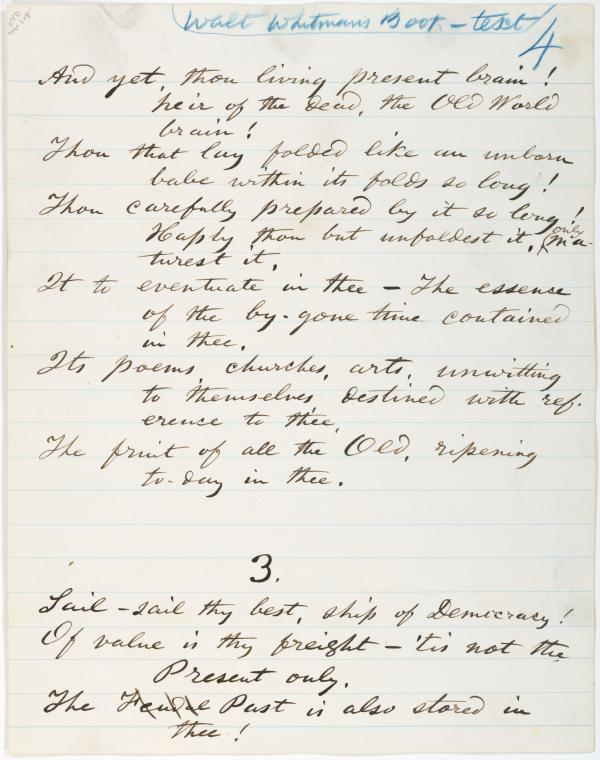 Walt Whitman's Book. - text
4
And yet, thou living present brain!
heir of the dead, the Old World
brain!
Thou that lay folded like an unborn
babe within its folds so long!
Thou carefully prepared by it so long!
Haply thou but unfoldest it, only ma-
turest it,
It to eventuate in thee – The essence
of the by-gone time contained
in thee,
Its poems, churches, arts, unwitting
to themselves, destined with ref-
erence to thee,
The fruit of all the Old, ripening
to-day in thee.
3.
Sail – sail thy best, ship of Democracy!
Of value is thy freight – 'tis not the
Present only,
The Feudal Past is also stored in
thee!